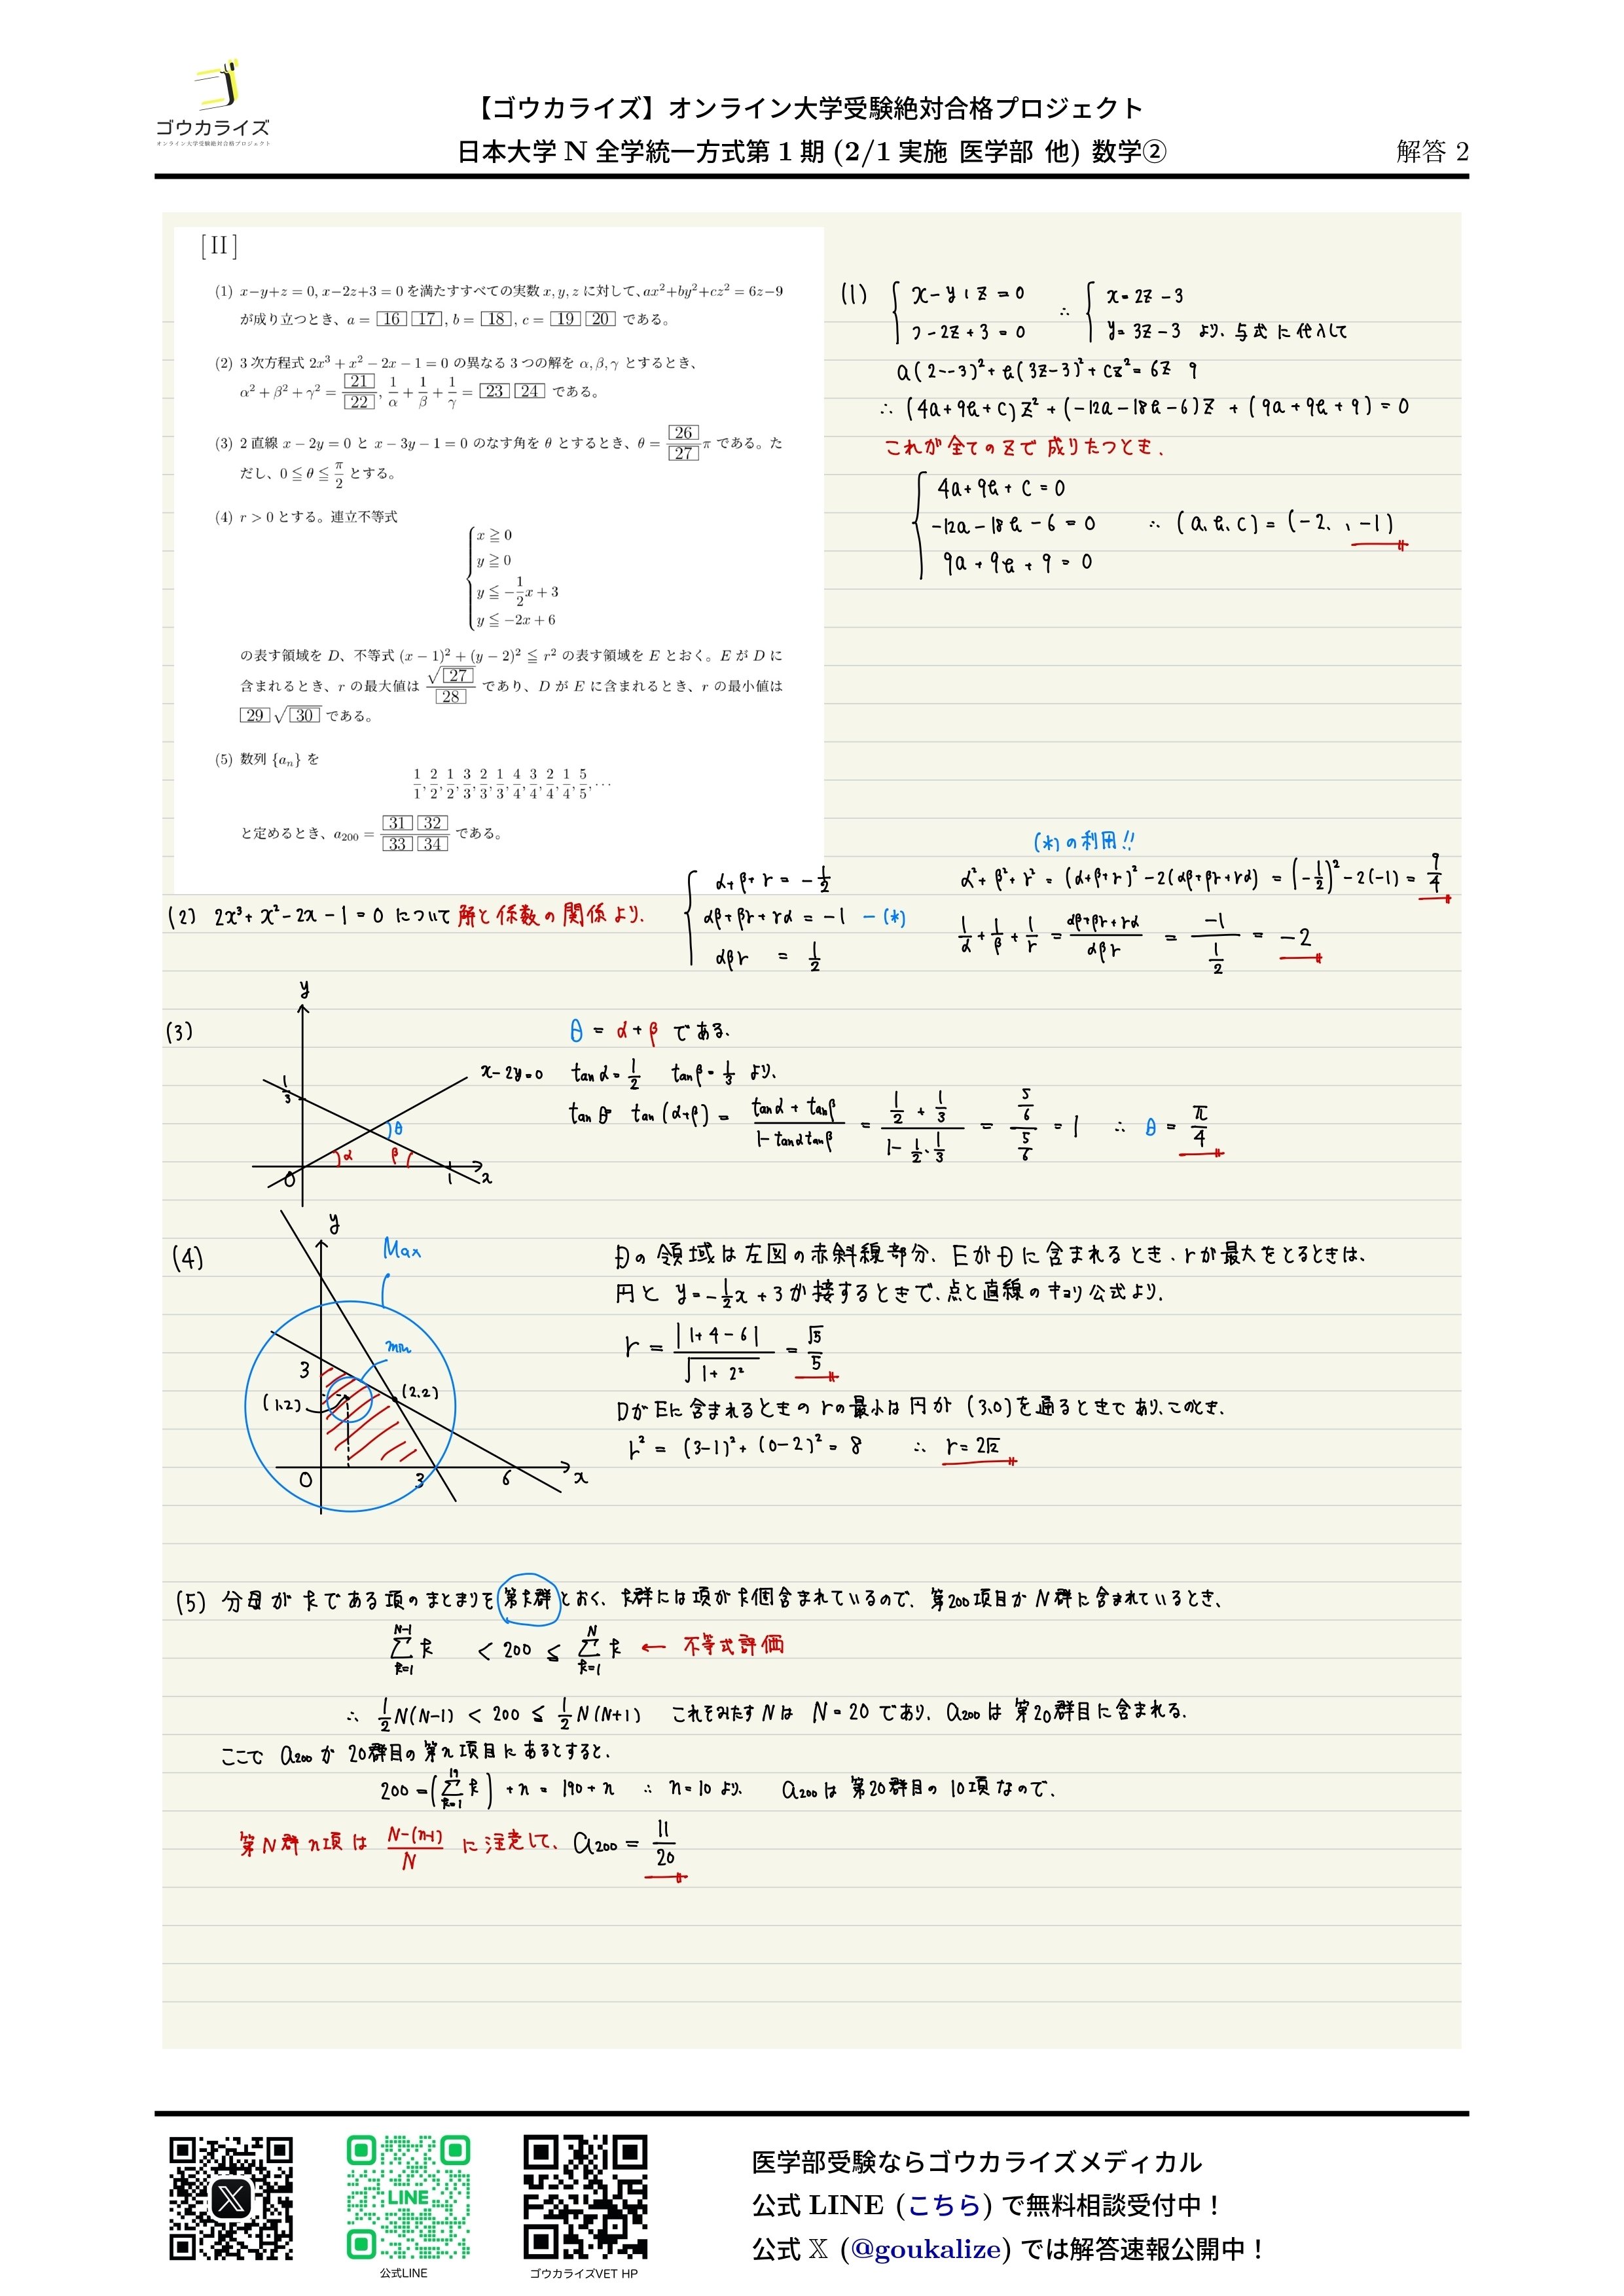 ゴウカライズ
オンライン大学受験絶対合格プロジェクト
【ゴウカライズ】オンライン大学受験絶対合格プロジェクト
日本大学 N 全学統一方式第 1 期 (2/1 実施 医学部 他) 数学②
解答 2
[ II ]
(1) x−y+z = 0, x−2z+3 = 0 を満たすすべての実数 x, y, z に対して、ax²+by²+cz² = 6z−9
が成り立つとき、a = 16 17 , b = 18 , c = 19 20 である。
(2) 3 次方程式 2x³ + x² − 2x − 1 = 0 の異なる 3 つの解を α, β, γ とするとき、
α² + β² + γ² = 21/22, 1/α + 1/β + 1/γ = 23 24 である。
(3) 2 直線 x − 2y = 0 と x − 3y − 1 = 0 のなす角を θ とするとき、θ = 26/27 π である。た
だし、0 ≦ θ ≦ π/2 とする。
(4) r > 0 とする。連立不等式
x ≧ 0
y ≧ 0
y ≦ −1/2 x + 3
y ≦ −2x + 6
の表す領域を D、不等式 (x − 1)² + (y − 2)² ≦ r² の表す領域を E とおく。E が D に
含まれるとき、r の最大値は √27/28 であり、D が E に含まれるとき、r の最小値は
29 √30 である。
(5) 数列 {aₙ} を
1/1, 2/2, 1/2, 3/3, 2/3, 1/3, 4/4, 3/4, 2/4, 1/4, 5/5, ···
と定めるとき、a₂₀₀ = 31 32/33 34 である。
(1) { x − y + z = 0 ∴ { x = 2z − 3
x − 2z + 3 = 0 y = 3z − 3 より、与式に代入して
a(2--3)² + b(3z−3)² + cz² = 6z 9
∴ (4a+9b+c)z² + (−12a−18b−6)z + (9a+9b+9) = 0
これが全てのzで成りたつとき、
4a+9b+c = 0
−12a−18b−6 = 0 ∴ (a, b, c) = (−2, , −1)
9a+9b+9 = 0
(2) 2x³+x²−2x−1 = 0 について解と係数の関係より、
α+β+γ = −1/2
αβ+βγ+γα = −1 −(*)
αβγ = 1/2
(*)の利用!!
α²+β²+γ² = (α+β+γ)² −2(αβ+βγ+γα) = (−1/2)² −2(−1) = 9/4
1/α + 1/β + 1/γ = αβ+βγ+γα/αβγ = −1/(1/2) = −2
(3)
y
1/3
x−2y=0
θ
α
β
O
1
x
θ = α+β である、
tanα = 1/2 tanβ = 1/3 より、
tanθ tan(α+β) = tanα+tanβ/1−tanαtanβ = (1/2+1/3)/(1−1/2·1/3) = (5/6)/(5/6) = 1 ∴ θ = π/4
(4)
y
Max
min
3
(1,2)
(2,2)
O
3
6
x
Dの領域は左図の赤斜線部分、EがDに含まれるとき、rが最大をとるときは、
円と y=−1/2x+3が接するときで、点と直線のキョリ公式より、
r = |1+4−6|/√(1+2²) = √5/5
DがEに含まれるときのrの最小は円が(3,0)を通るときであり、このとき、
r² = (3−1)²+(0−2)² = 8 ∴ r=2√2
(5) 分母がkである項のまとまりを第k群とおく、k群には項がk個含まれているので、第200項目がN群に含まれているとき、
∑_{k=1}^{N−1} k < 200 ≤ ∑_{k=1}^{N} k ← 不等式評価
∴ 1/2N(N−1) < 200 ≤ 1/2N(N+1) これをみたすNは N=20 であり、a₂₀₀は第20群目に含まれる、
ここで a₂₀₀が20群目の第n項目にあるとすると、
200 = (∑_{k=1}^{19} k) + n = 190+n ∴ n=10 より、 a₂₀₀は第20群目の10項なので、
第N群n項は N−(n−1)/N に注意して、a₂₀₀ = 11/20
公式LINE
LINE
ゴウカライズVET HP
医学部受験ならゴウカライズメディカル
公式 LINE (こちら) で無料相談受付中！
公式 𝕏 (@goukalize) では解答速報公開中！